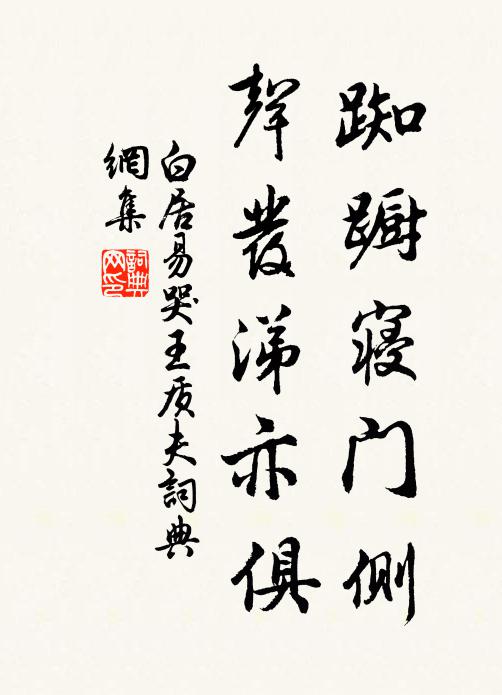 踟蹰寝门侧
聲發涕亦俱
白居易哭王质夫詞典
網集
詞典
网印